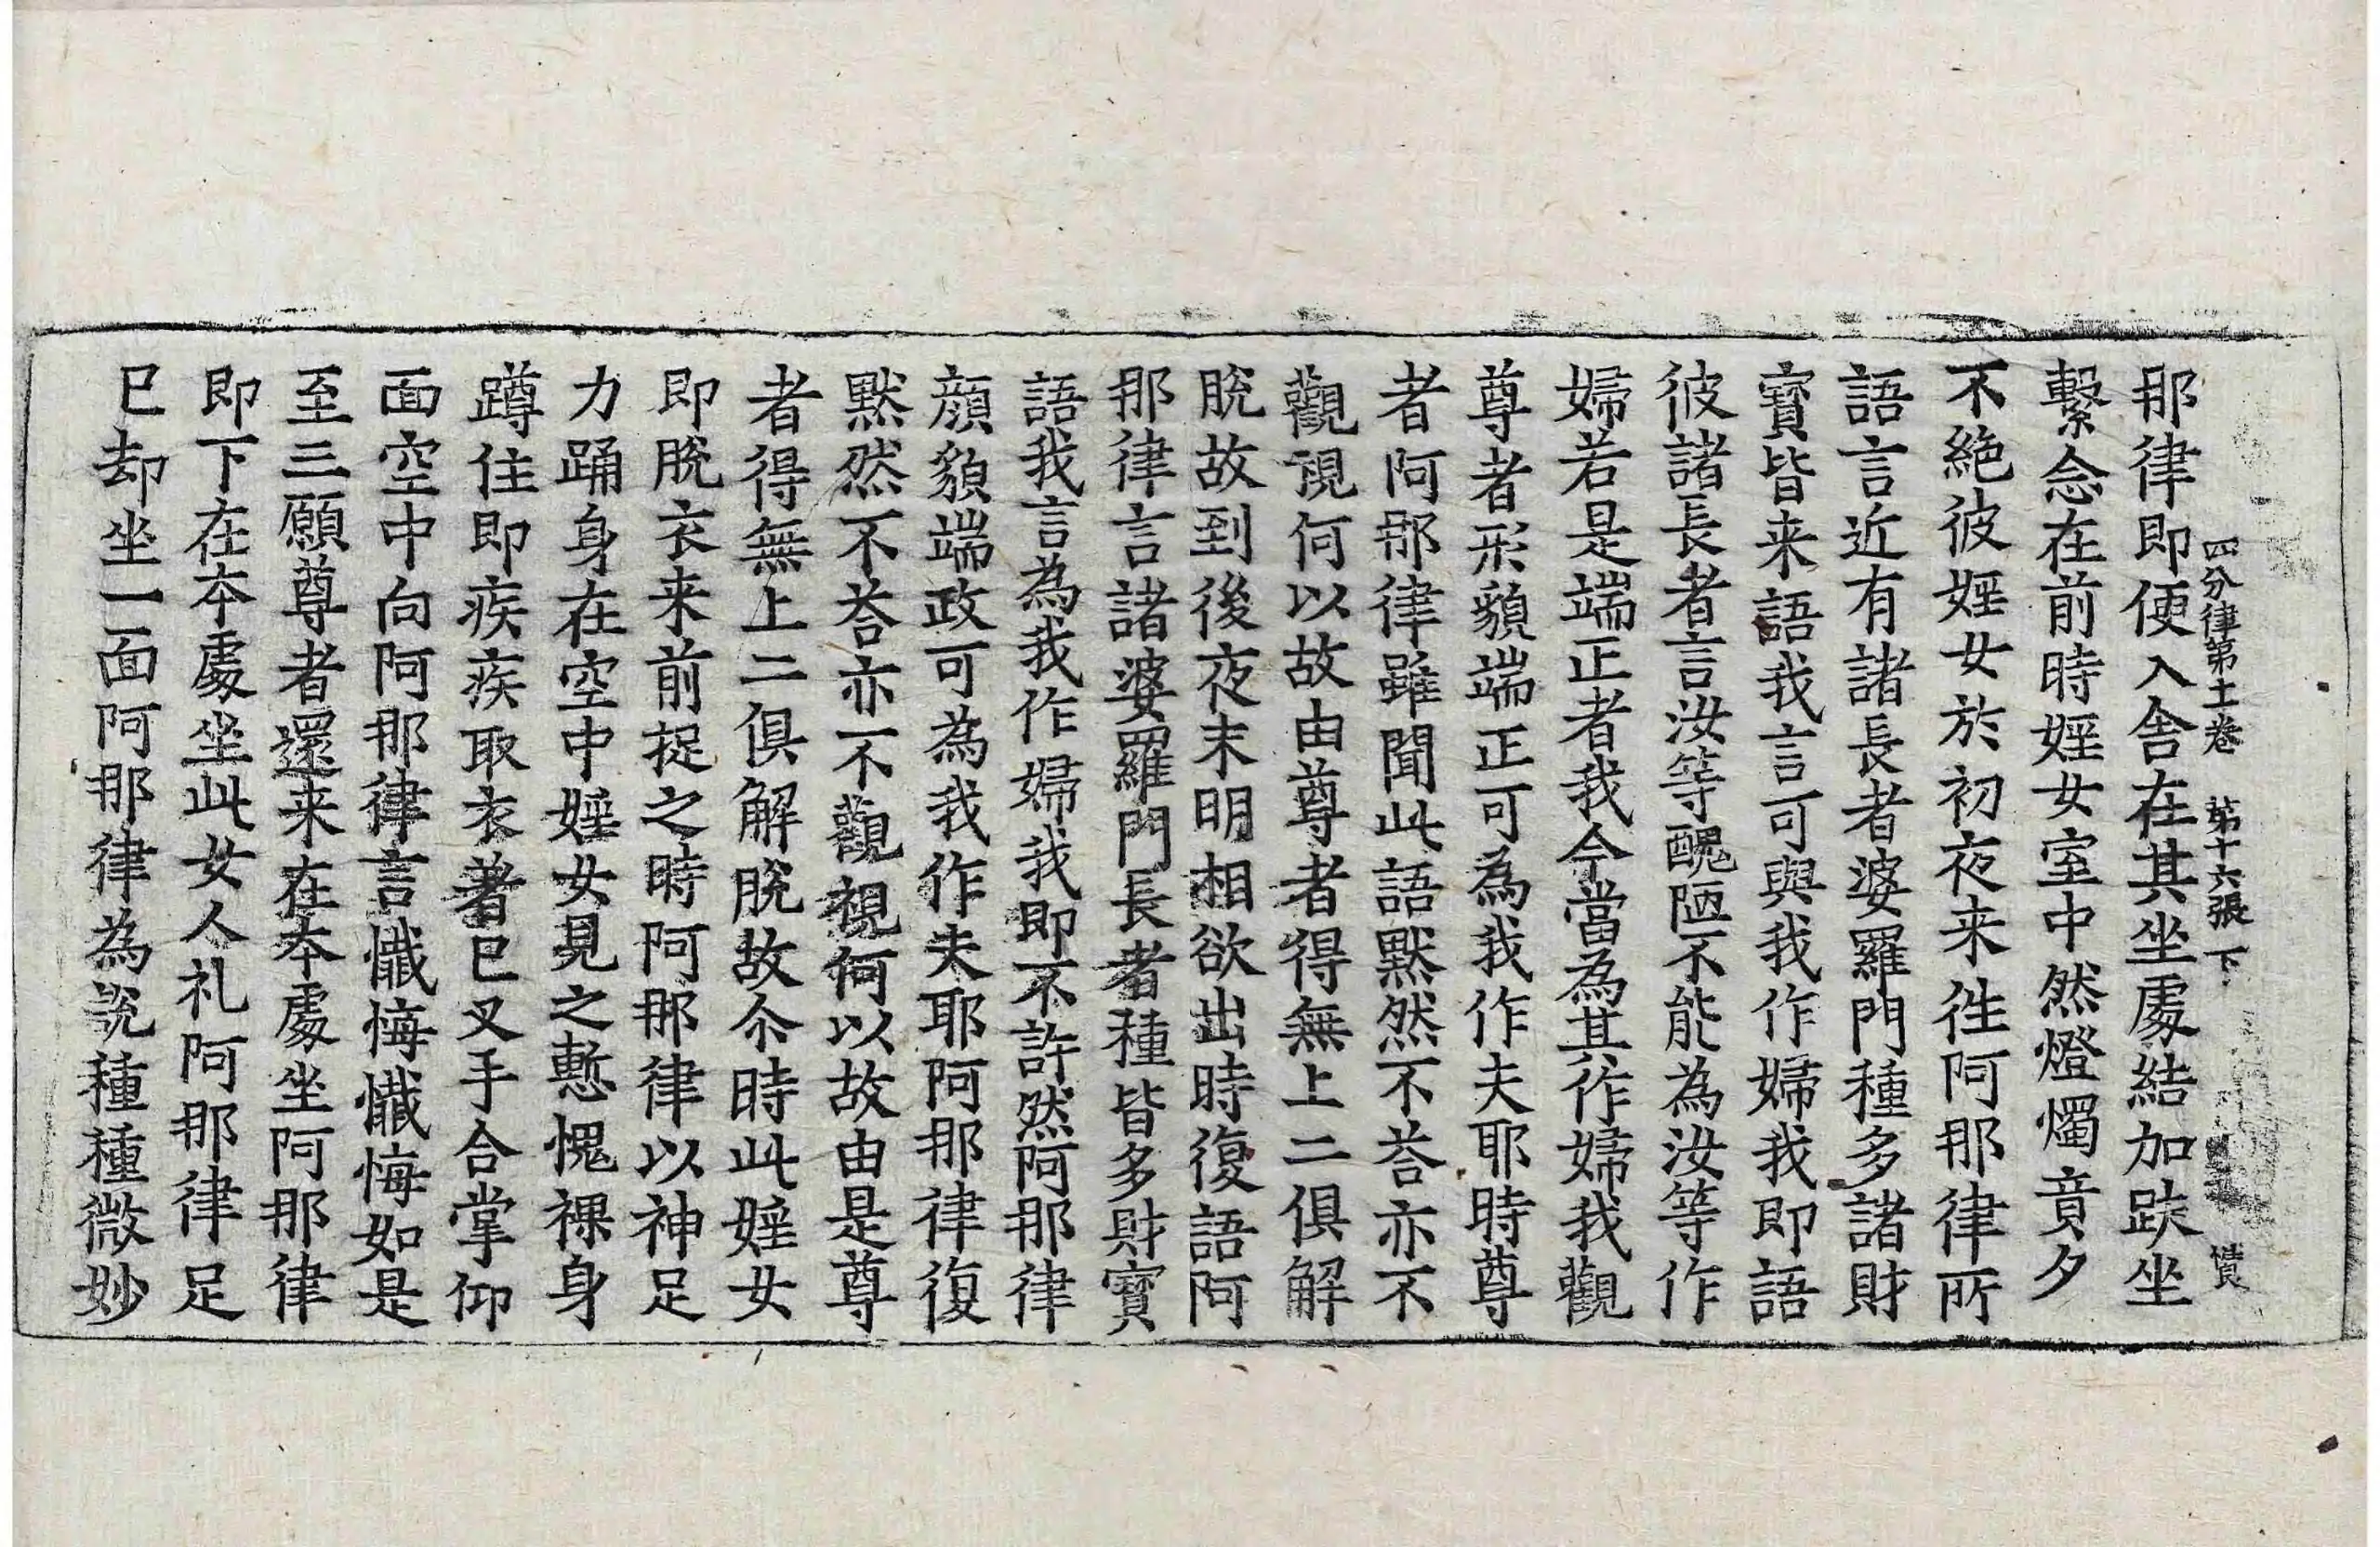 四分律第十一卷 苐十六張 下 憤
那律即便入舍在其坐處結加趺坐
繫念在前時婬女室中然燈燭竟夕
不絶彼婬女於初夜来往阿那律所
語言近有諸長者婆羅門種多諸財
寶皆来語我言可與我作婦我即語
彼諸長者言汝等醜陋不能為汝等作
婦若是端正者我今當為其作婦我觀
尊者形貌端正可為我作夫耶時尊
者阿那律雖聞此語默然不荅亦不
觀視何以故由尊者得無上二俱解
脫故到後夜末明相欲出時復語阿
那律言諸婆羅門長者種皆多財寶
語我言為我作婦我即不許然阿那律
顔貌端政可為我作夫耶阿那律復
默然不荅亦不觀視何以故由是尊
者得無上二俱解脫故尒時此婬女
即脫衣来前捉之時阿那律以神足
力踊身在空中婬女見之慙愧裸身
蹲住即疾疾取衣著已叉手合掌仰
面空中向阿那律言懺悔懺悔如是
至三願尊者還来在本處坐阿那律
即下在本處坐此女人礼阿那律足
已却坐一面阿那律為說種種微妙